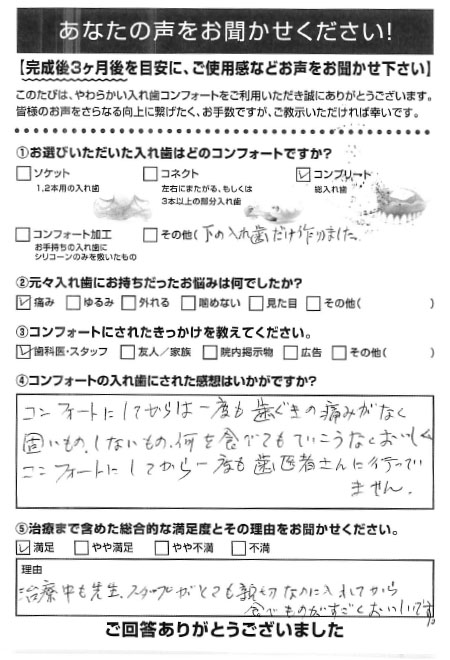 あなたの声をお聞かせください!
【完成後3ヶ月後を目安に、ご使用感などお声をお聞かせ下さい】
このたびは、やわらかい入れ歯コンフォートをご利用いただき誠にありがとうございます。
皆様のお声をさらなる向上に繋げたく、お手数ですが、ご教示いただければ幸いです。
①お選びいただいた入れ歯はどのコンフォートですか?
□ソケット □コネクト ☑コンプリート
1,2本用の入れ歯 左右にまたがる、もしくは 総入れ歯
3本以上の部分入れ歯
□コンフォート加工 □その他(下の入れ歯だけ作りました
お手持ちの入れ歯に
シリコーンのみを敷いたもの
②元々入れ歯にお持ちだったお悩みは何でしたか?
☑痛み □ゆるみ □外れる □噛めない □見た目 □その他( )
③コンフォートにされたきっかけを教えてください。
☑歯科医・スタッフ □友人/家族 □院内掲示物 □広告 □その他( )
④コンフォートの入れ歯にされた感想はいかがですか?
コンフォートにしてからは一度も歯ぐきの痛みがなく
固いもの、しないもの、何を食べてもていこうなくおいしく
コンフォートにしてから一度も歯医者さんに行ってい
ません。
⑤治療まで含めた総合的な満足度とその理由をお聞かせください。
☑満足 □やや満足 □やや不満 □不満
理由
治療中も先生、スタッフがとても親切なのに入れてから
食べものがすごくおいしいです。
ご回答ありがとうございました